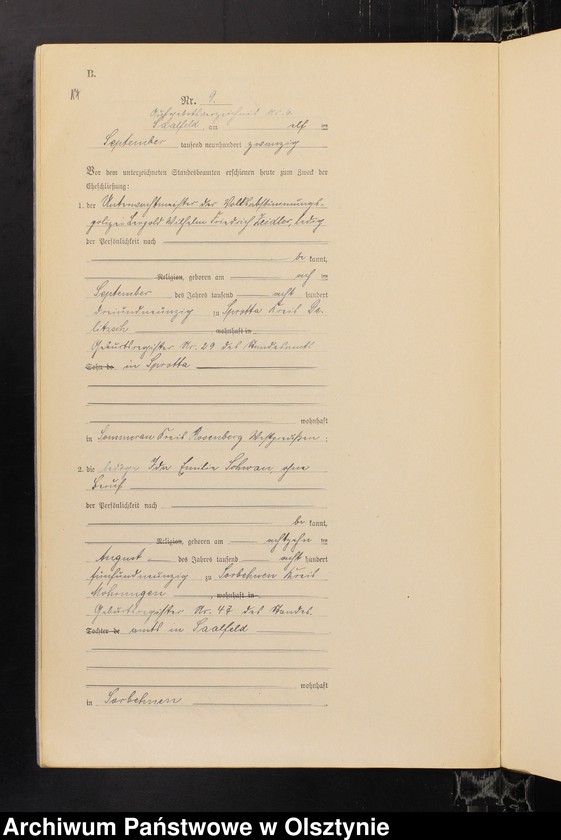 B.
Nr. 9.
Aufgebotsverzeichnis Nr. 9.
Saalfeld, am elf ten
September tausend neunhundert zwanzig
Vor dem unterzeichneten Standesbeamten erschienen heute zum Zweck der
Eheschließung:
1. der Unterwachtmeister der Volksabstimmungs-
polizei Leopold Wilhelm Friedrich Zeidler, ledig
der Persönlichkeit nach
be kannt,
Religion, geboren am ach ten
September des Jahres tausend acht hundert
dreiundneunzig zu Sprotta Kreis De-
litzsch, wohnhaft in
Geburtsregister Nr. 29 des Standesamts
Sohn de in Sprotta
wohnhaft
in Sommerau Kreis Rosenberg Westpreußen.
2. die ledige Ida Emilie Schwan, ohne
Beruf
der Persönlichkeit nach
be kannt,
Religion, geboren am achtzehn ten
August des Jahres tausend acht hundert
fünfundneunzig zu Sorbehnen Kreis
Mohrungen, wohnhaft in
Geburtsregister Nr. 47 des Standes-
Tochter de amts in Saalfeld
wohnhaft
in Sorbehnen
Archiwum Państwowe w Olsztynie